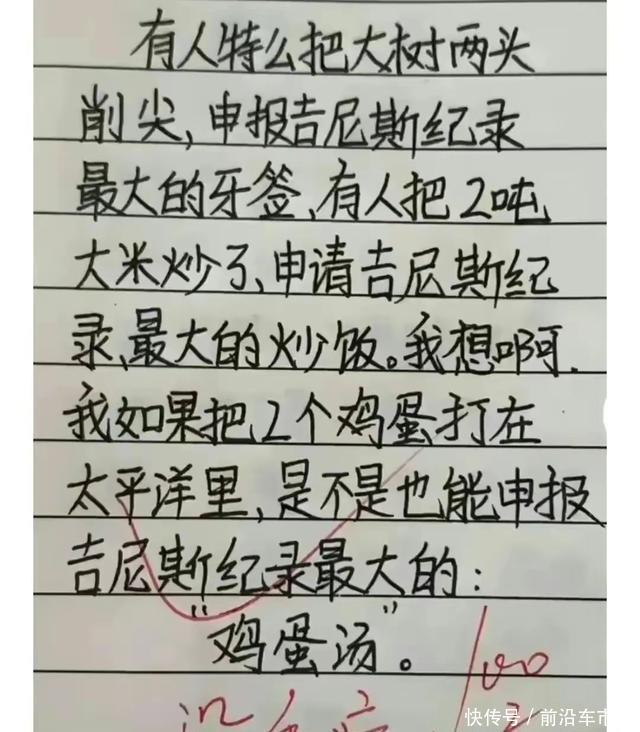 有人特么把大树两头
削尖,申报吉尼斯纪录
最大的牙签,有人把2吨
大米炒了,申请吉尼斯纪
录,最大的炒饭。我想啊,
我如果把2个鸡蛋打在
太平洋里,是不是也能申报
吉尼斯纪录最大的:
"鸡蛋汤"。
100
快传号/前沿车市